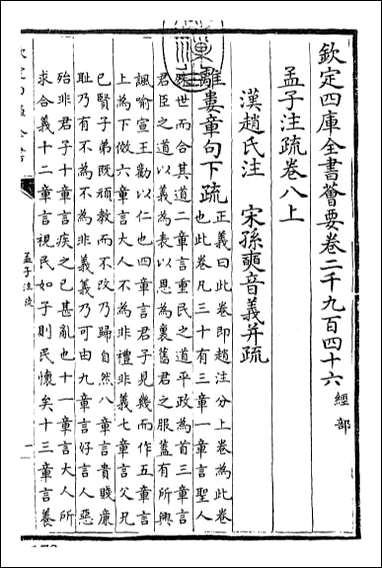 欽定四庫全書薈要卷二千九百四十六 經部
孟子注疏卷八上
漢趙氏注 宋孫奭音義并疏
離婁章句下疏正義曰此卷即趙注分上卷為此卷
也此卷凡三十有三章一章言聖人
殊世而合其道二章言重民之道平政為首三章言
君臣之道以義為表以恩為裏舊君之服蓋有所興
諷喻宣王勸以仁也四章言君子見幾而作五章言
上為下傚六章言大人不為非禮非義七章言父兄
已賢子弟既頑教而不改乃歸自然八章言貴賤廉
耻乃有不為不為非義義乃可由九章言好言人惡
殆非君子十章言疾之已甚亂也十一章言大人所
求合義十二章言視民如子則民懷矣十三章言養
孟子注疏
一